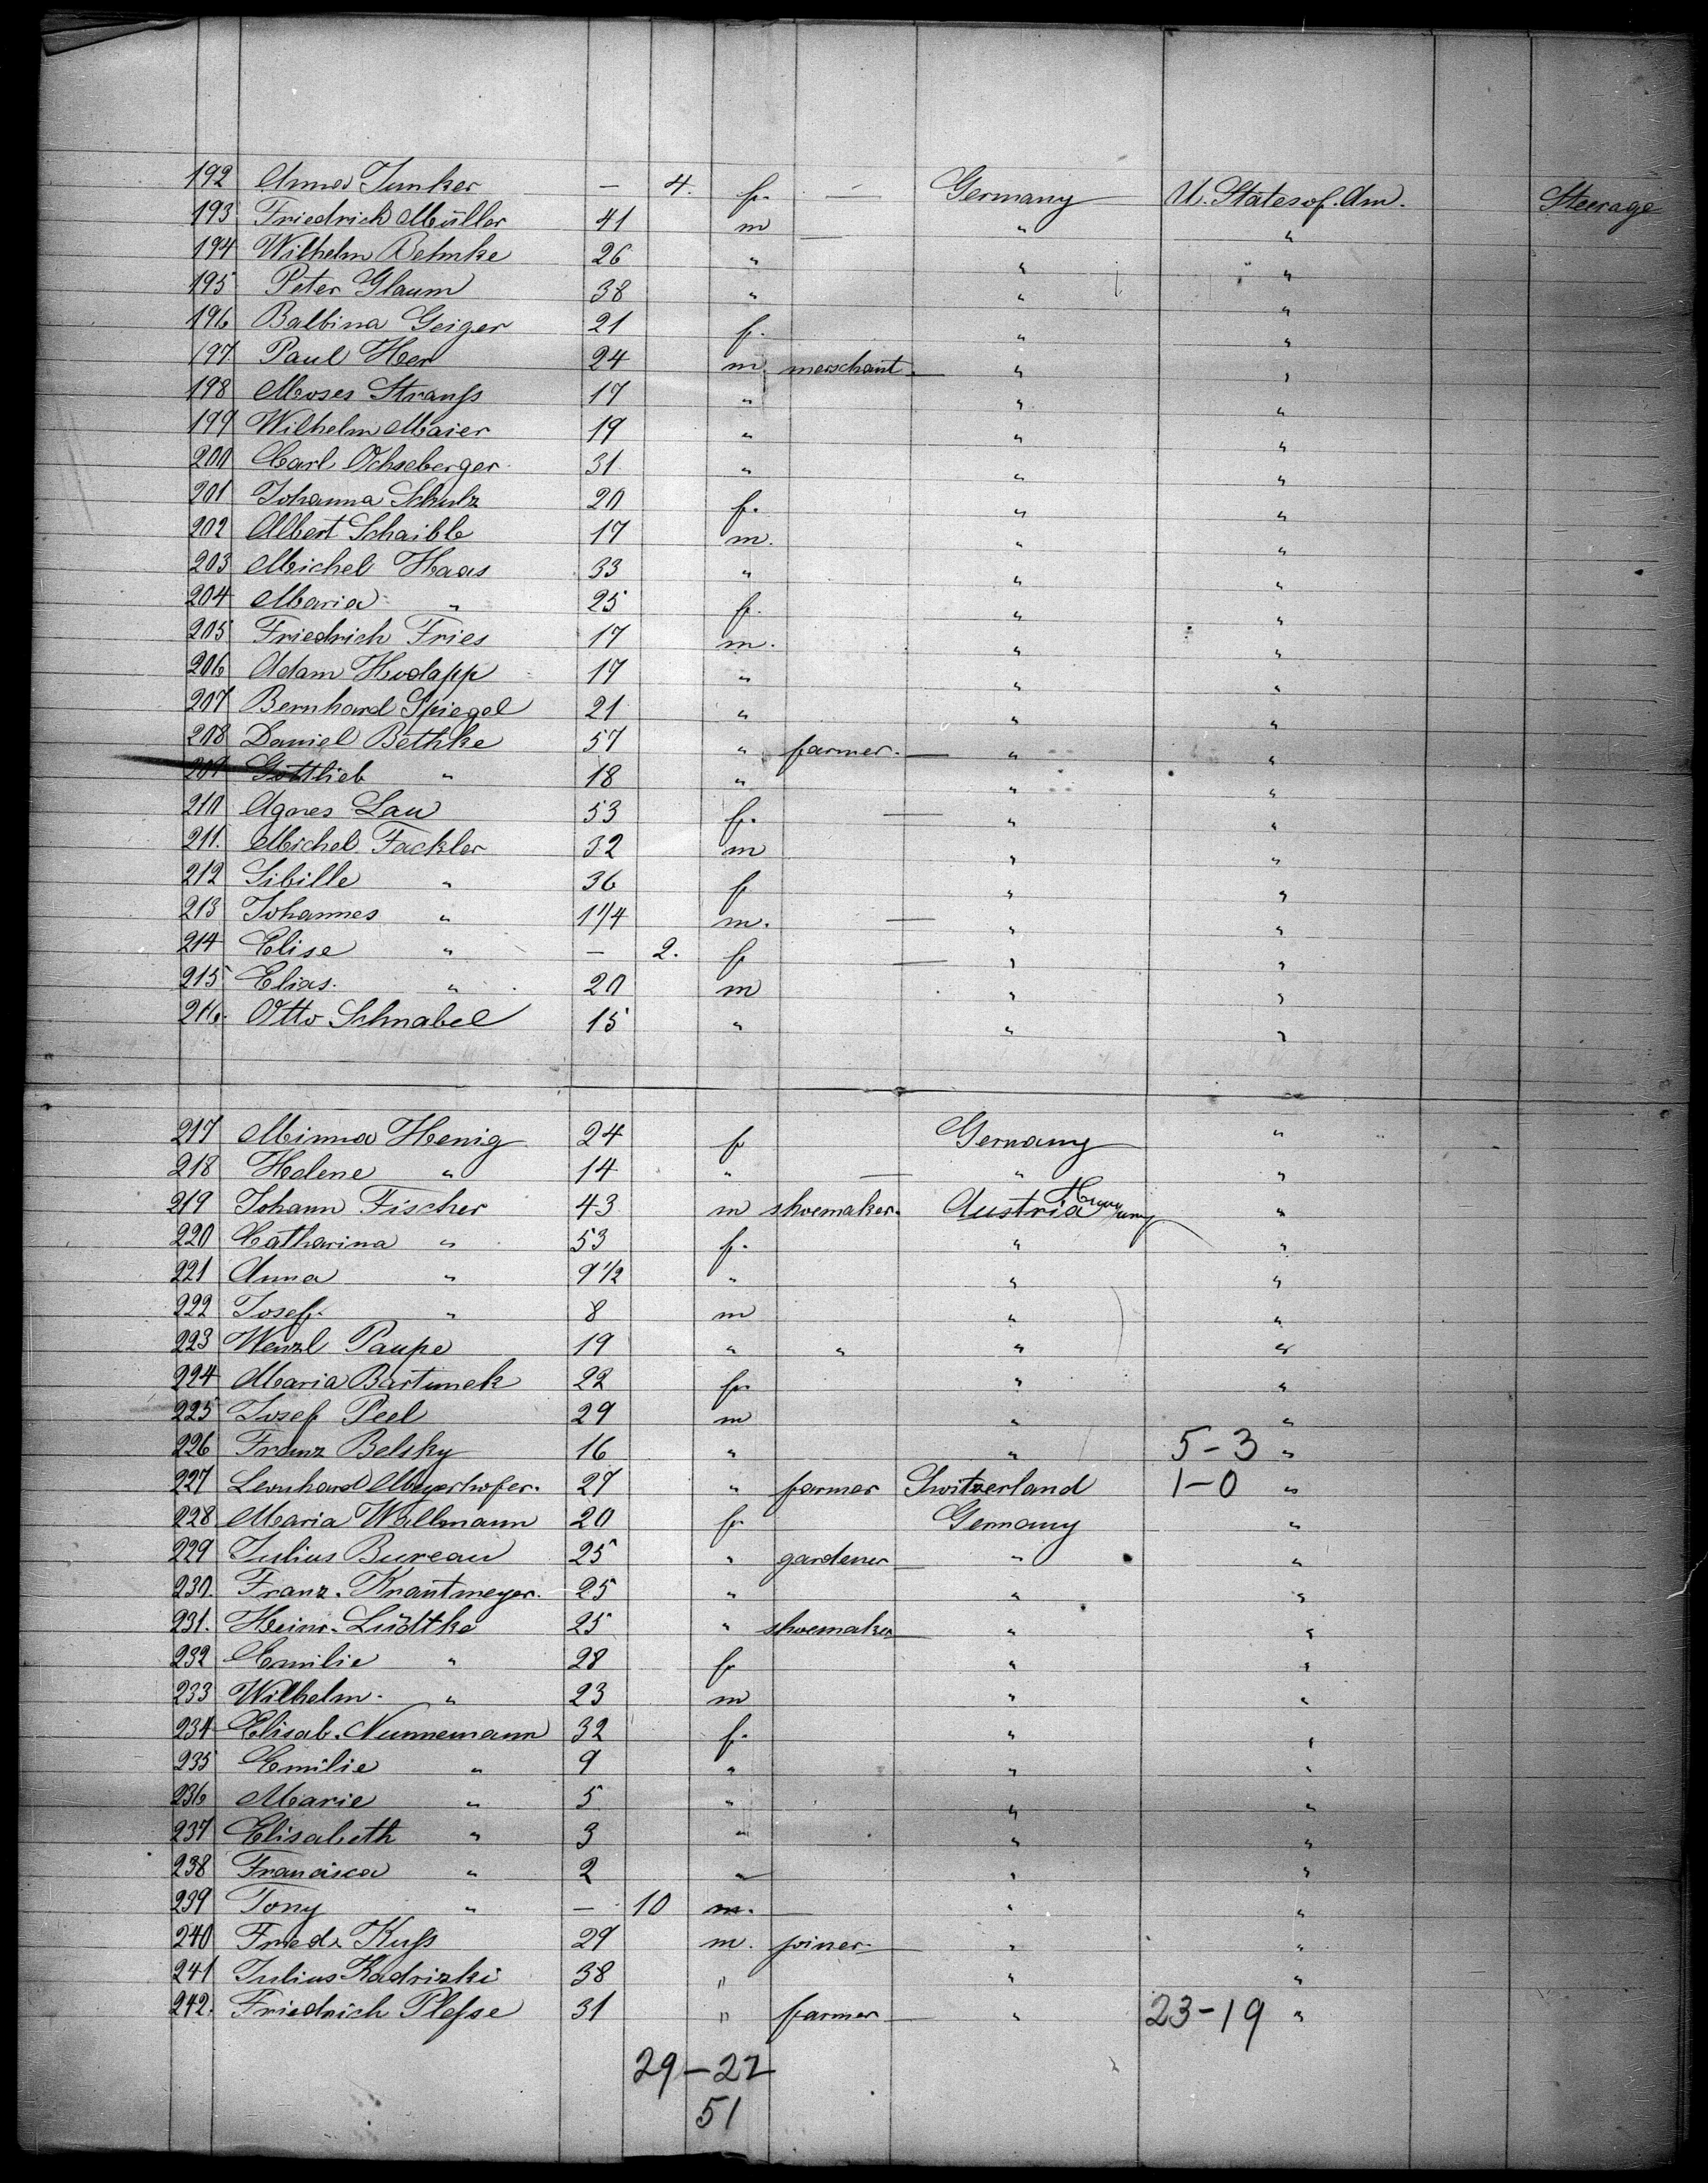 192 Anna Junker — 4. f. — Germany U. States of. Am. Steerage
193 Friedrich Müller 41 m — " "
194 Wilhelm Behnke 26 " " "
195 Peter Glaum 38 " " "
196 Balbina Geiger 21 f. " "
197. Paul Her 24 m. merschant. — " "
198 Moses Strauß 17 " " "
199 Wilhelm Maier 19 " " "
200 Carl Ochseberger 31 " " "
201 Johanna Schulz 20 f. " "
202 Albert Schaible 17 m. " "
203 Michel Haas 33 " " "
204 Maria " 25 f. " "
205 Friedrich Fries 17 m. " "
206 Adam Hodapp 17 " " "
207 Bernhard Spiegel 21 " " "
208 Daniel Bethke 57 " farmer. — " "
209 Gottlieb " 18 " " "
210 Agnes Lau 53 f. — " "
211. Michel Fackler 32 m " "
212 Sibille " 36 f " "
213 Johannes " 1 1/4 m. — " "
214 Elise " — 2. f — " "
215 Elias. " 20 m " "
216. Otto Schnabel 15 " " "
217 Minna Henig 24 f Germany "
218 Helene " 14 " — " "
219 Johann Fischer 43 m shoemaker. Austria Hungary "
220 Catharina " 53 f. " "
221 Anna " 9 1/2 " " "
222 Josef. " 8 m " "
223 Wenzl Paupe 19 " " " "
224 Maria Bartunek 22 f. " "
225 Josef Peel 29 m " "
226 Franz Belsky 16 " " 5-3 "
227 Leonhard Meyerhofer. 27 " farmer Switzerland 1-0 "
228 Maria Wallmann 20 f Germany "
229 Julius Bureau 25 " gardener — " "
230. Franz. Krautmeyer. 25 " " "
231. Heinr. Lüdtke 25 " shoemaker — " "
232 Emilie " 28 f " "
233 Wilhelm. " 23 m " "
234 Elisab. Nunnemann 32 f. " "
235 Emilie " 9 " " "
236 Marie " 5 " " "
237 Elisabeth " 3 " " "
238 Francisca " 2 " " "
239 Tony " — 10 m. — " "
240 Friedr. Kuß 29 m. joiner. — " "
241 Julius Kadrizki 38 " " "
242. Friedrich Pleße 31 " farmer — " 23-19 "
29-22
51